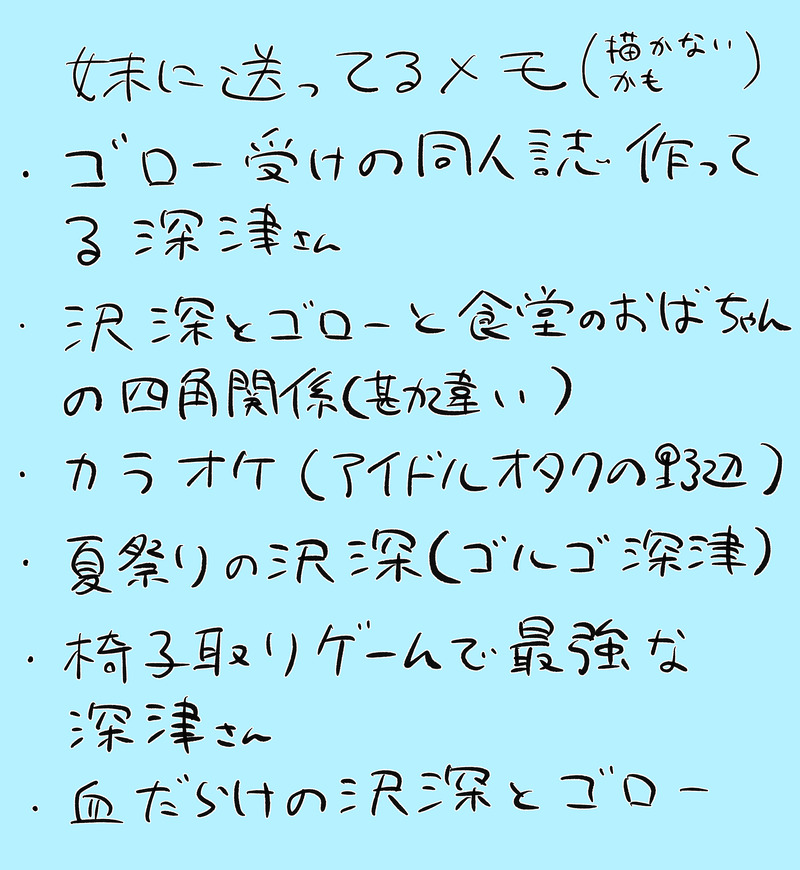 妹に送ってるメモ(描かないかも)
・ゴロー受けの同人誌作って
る深津さん
・沢深とゴローと食堂のおばちゃん
の四角関係(勘違い)
・カラオケ(アイドルオタクの野辺)
・夏祭りの沢深(ゴルゴ深津)
・椅子取りゲームで最強な
深津さん
・血だらけの沢深とゴロー